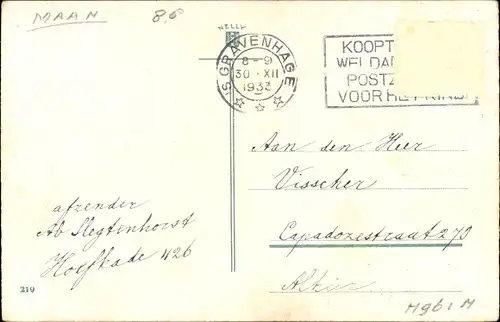 MAAN 8.5
NELLY
'S GRAVENHAGE
8-9
30.XII
1933
KOOPT
WELDA
POST
VOOR HET KIND
Aan den Heer
Visscher
Capadozestraat 279
Alhier
afzender
Ab Slegtenhorst
Hoefkade 426
219
M96 1 M